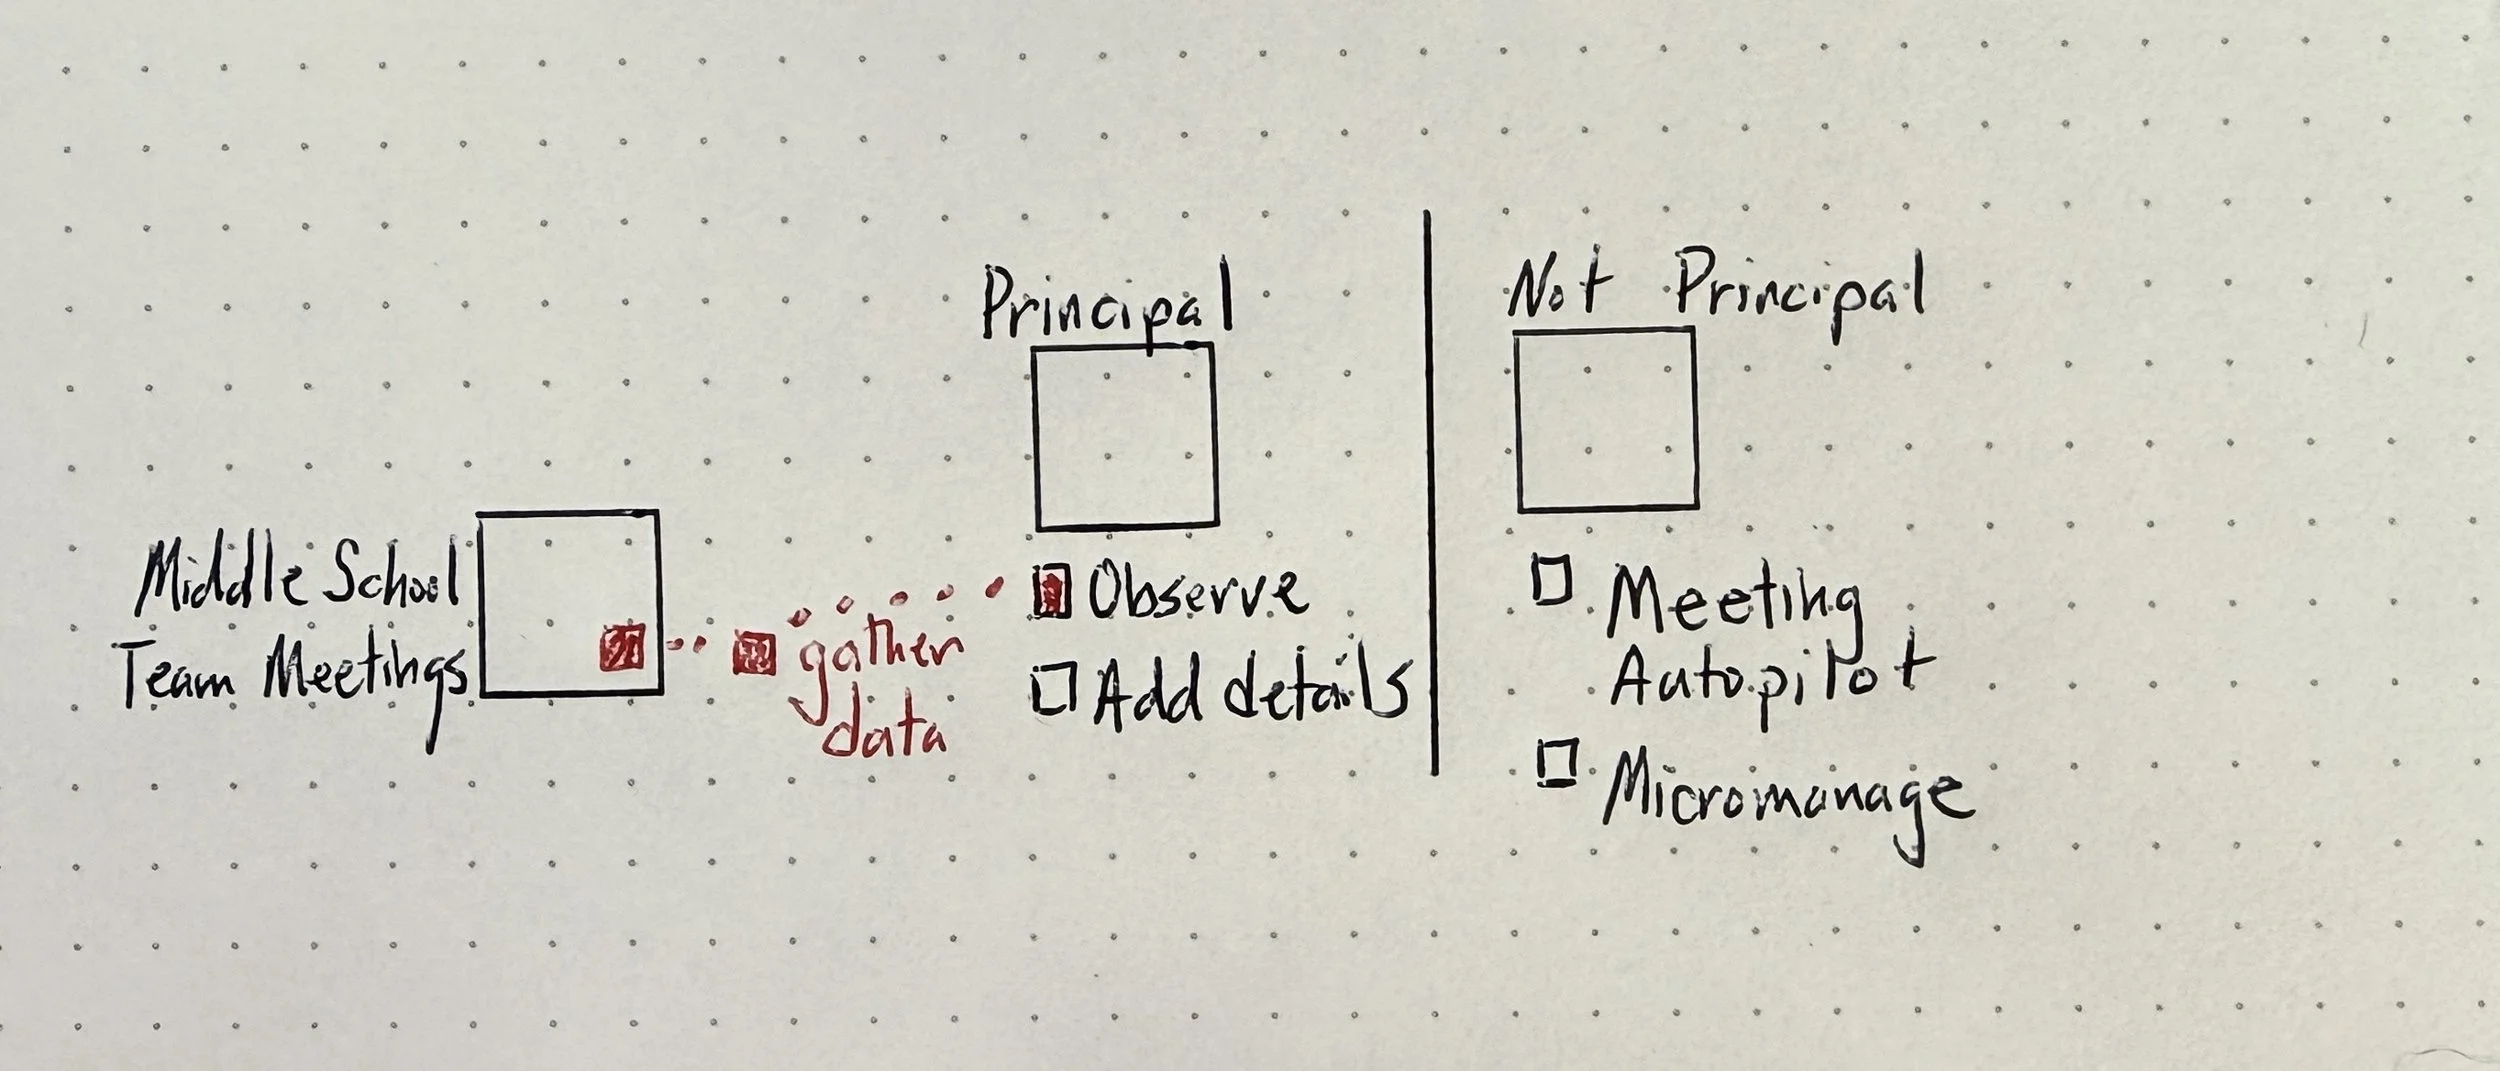 Principal
Not Principal
Middle School
Team Meetings
gather
data
Observe
Add details
Meeting
Autopilot
Micromanage